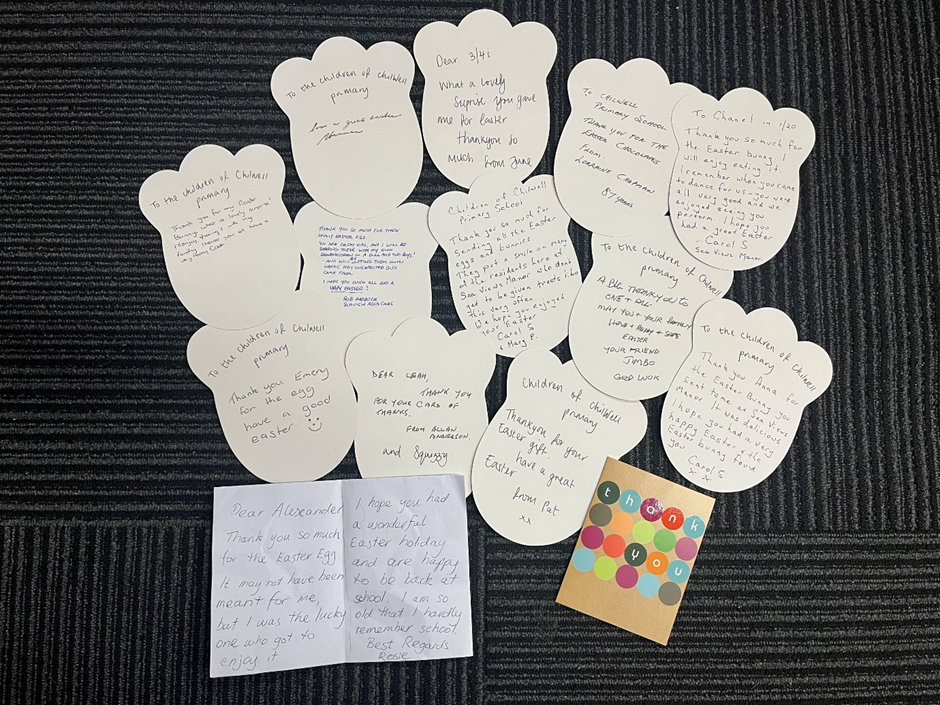 To the children of Chilwell
primary
Dear 3/4s
What a lovely
Suprise you gave
me for Easter
thankyou so
much from June
To CHILWELL
PRIMARY SCHOOL
THANK YOU FOR THE
EASTER CHOCOLATES
FROM
LORRAINE
87 years
To Chanel in 1/20
Thank you so much for
the Easter Bunny I
will enjoy eating it
I remember when you came
to dance for us - you were
all very good and we
enjoyed seeing you
Perform I hope you
had a great Easter
Carol S
Sea Views Manor
To the children of Chilwell
primary
Thank you for my Easter
THANK YOU SO MUCH FOR THESE
LOVELY EASTER EGGS.
YOU ARE GREAT KIDS, AND I WILL BE
SHARING THESE WITH MY OWN
GRANDCHILDREN
AND WILL LETTING THEM KNOW
WHERE THIS UNEXPECTED GIFT
CAME FROM.
I HOPE YOU HAVE ALL HAD A
HAPPY EASTER!
ROB
Children of Chilwell
Primary School
Thank you so much for
sending all the Easter
eggs and bunnies.
They put a smile on many
of the residents here at
Sea Views Manor who dont
get to be given treats like
this very often.
We hope you enjoyed
your Easter
Carol S
Mary P.
To the children of Chilwell
primary
A BIG THANKYOU TO
ONE + ALL.
MAY YOU + YOUR FAMILY
HAVE A HAPPY + SAFE
EASTER
YOUR FRIEND
JIMBO
GOOD LUCK
To the children of Chilwell
primary
Thank you Emery
for the egg
have a good
easter.
DEAR LEAH,
THANK YOU
FOR YOUR CARD OF
THANKS.
FROM ALLAN
ANDERSON.
and Squizzy
Children of Chilwell
primary
Thankyou for your
Easter gift.
have a great
Easter
from Pat
xx
To the children of Chilwell
primary
Thank you Anna for
the Easter Bunny you
sent to me at Sea Views
Manor it was delicious
I hope you had a very
happy Easter & the
Easter bunny found
you
Carol S
xx
Dear Alexander
Thank you so much
for the Easter Egg
It may not have been
meant for me,
but I was the lucky
one who got to
enjoy it.
I hope you had
a wonderful
Easter holiday
and are happy
to be back at
school. I am so
old that I hardly
remember school.
Best Regards
Rosie
thank
you